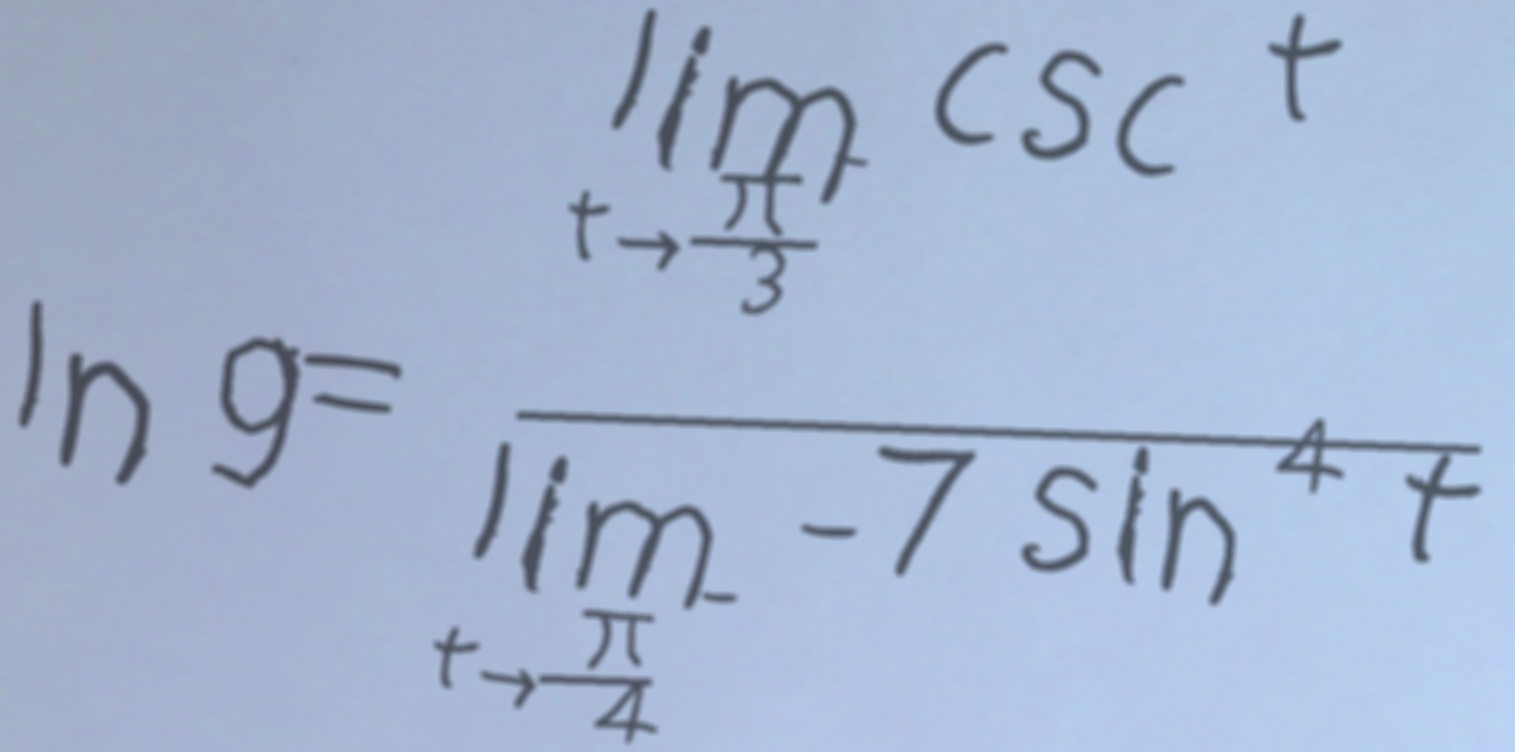 \ln g = \frac{\lim_{t \to \frac{\pi}{3}} \csc t}{\lim_{t \to \frac{\pi}{4}} -7 \sin^4 t}